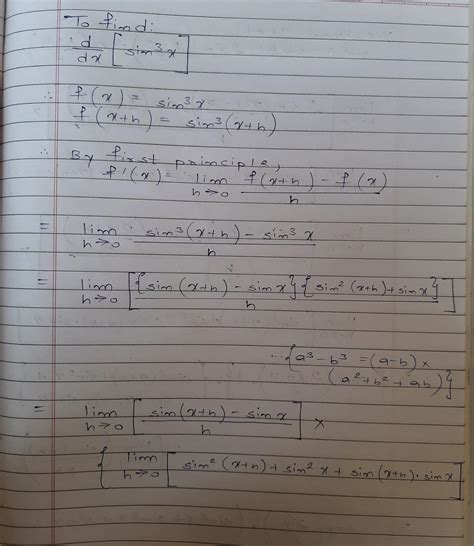 To find:
d/dx [sin³x]
∴ f(x) = sin³x
f(x+h) = sin³(x+h)
∴ By first principle,
f'(x) = lim h→0 f(x+h) - f(x) / h
= lim h→0 sin³(x+h) - sin³x / h
= lim h→0 [{sin(x+h) - sinx}{sin²(x+h)+sinx} / h]
...{a³-b³ = (a-b)×
(a²+b²+ab)}
= lim h→0 [sin(x+h) - sinx / h] ×
{lim h→0 [sin²(x+h)+sin²x+sin(x+h)·sinx]